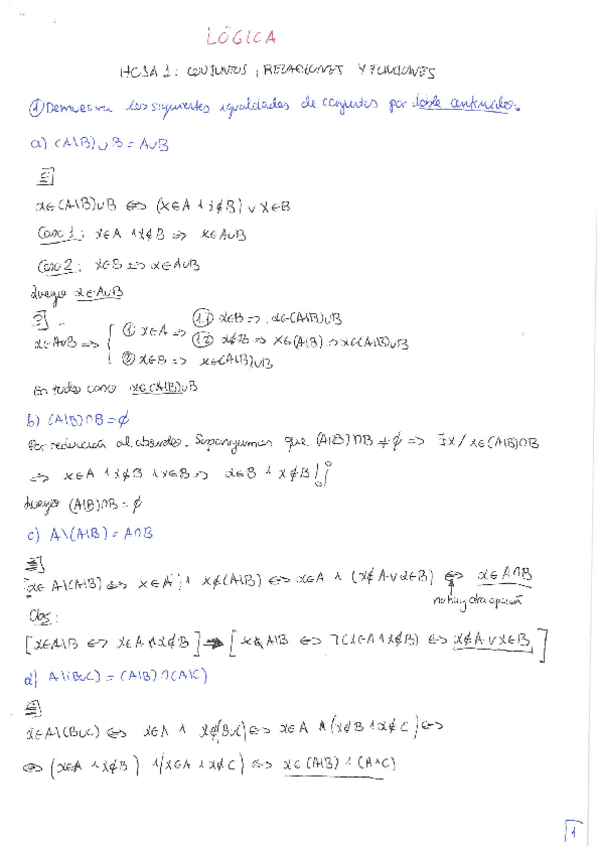 LÓGICA
HOJA 1: CONJUNTOS, RELACIONES Y FUNCIONES
① Demuestra las siguientes igualdades de conjuntos por doble contenido.
a) (A\B)∪B = A∪B
⊆]
x∈(A\B)∪B ⇔ (x∈A ∧ x∉B) ∨ x∈B
Caso 1: x∈A ∧ x∉B ⇒ x∈A∪B
Caso 2: x∈B ⇒ x∈A∪B
Luego x∈A∪B
⊇]
x∈A∪B ⇒ { ① x∈A ⇒ (1.1) x∈B ⇒ x∈(A\B)∪B
(1.2) x∉B ⇒ x∈(A\B) ⇒ x∈(A\B)∪B
② x∈B ⇒ x∈(A\B)∪B
En todo caso x∈(A\B)∪B
b) (A\B)∩B = ∅
Por reducción al absurdo. Supongamos que (A\B)∩B ≠ ∅ ⇒ ∃x / x∈(A\B)∩B
⇒ x∈A ∧ x∉B ∧ x∈B ⇒ x∈B ∧ x∉B !¡
Luego (A\B)∩B = ∅
c) A\(A\B) = A∩B
x∈A\(A\B) ⇔ x∈A ∧ x∉(A\B) ⇔ x∈A ∧ (x∉A ∨ x∈B) ⇔ x∈A∩B
no hay otra opción
Obs:
[x∈A\B ⇔ x∈A ∧ x∉B] ⇒ [x∉A\B ⇔ ¬(x∈A ∧ x∉B) ⇔ x∉A ∨ x∈B]
d) A\(B∪C) = (A\B)∩(A\C)
x∈A\(B∪C) ⇔ x∈A ∧ x∉(B∪C) ⇔ x∈A ∧ (x∉B ∧ x∉C) ⇔
⇔ (x∈A ∧ x∉B) ∧ (x∈A ∧ x∉C) ⇔ x∈(A\B)∩(A\C)
1